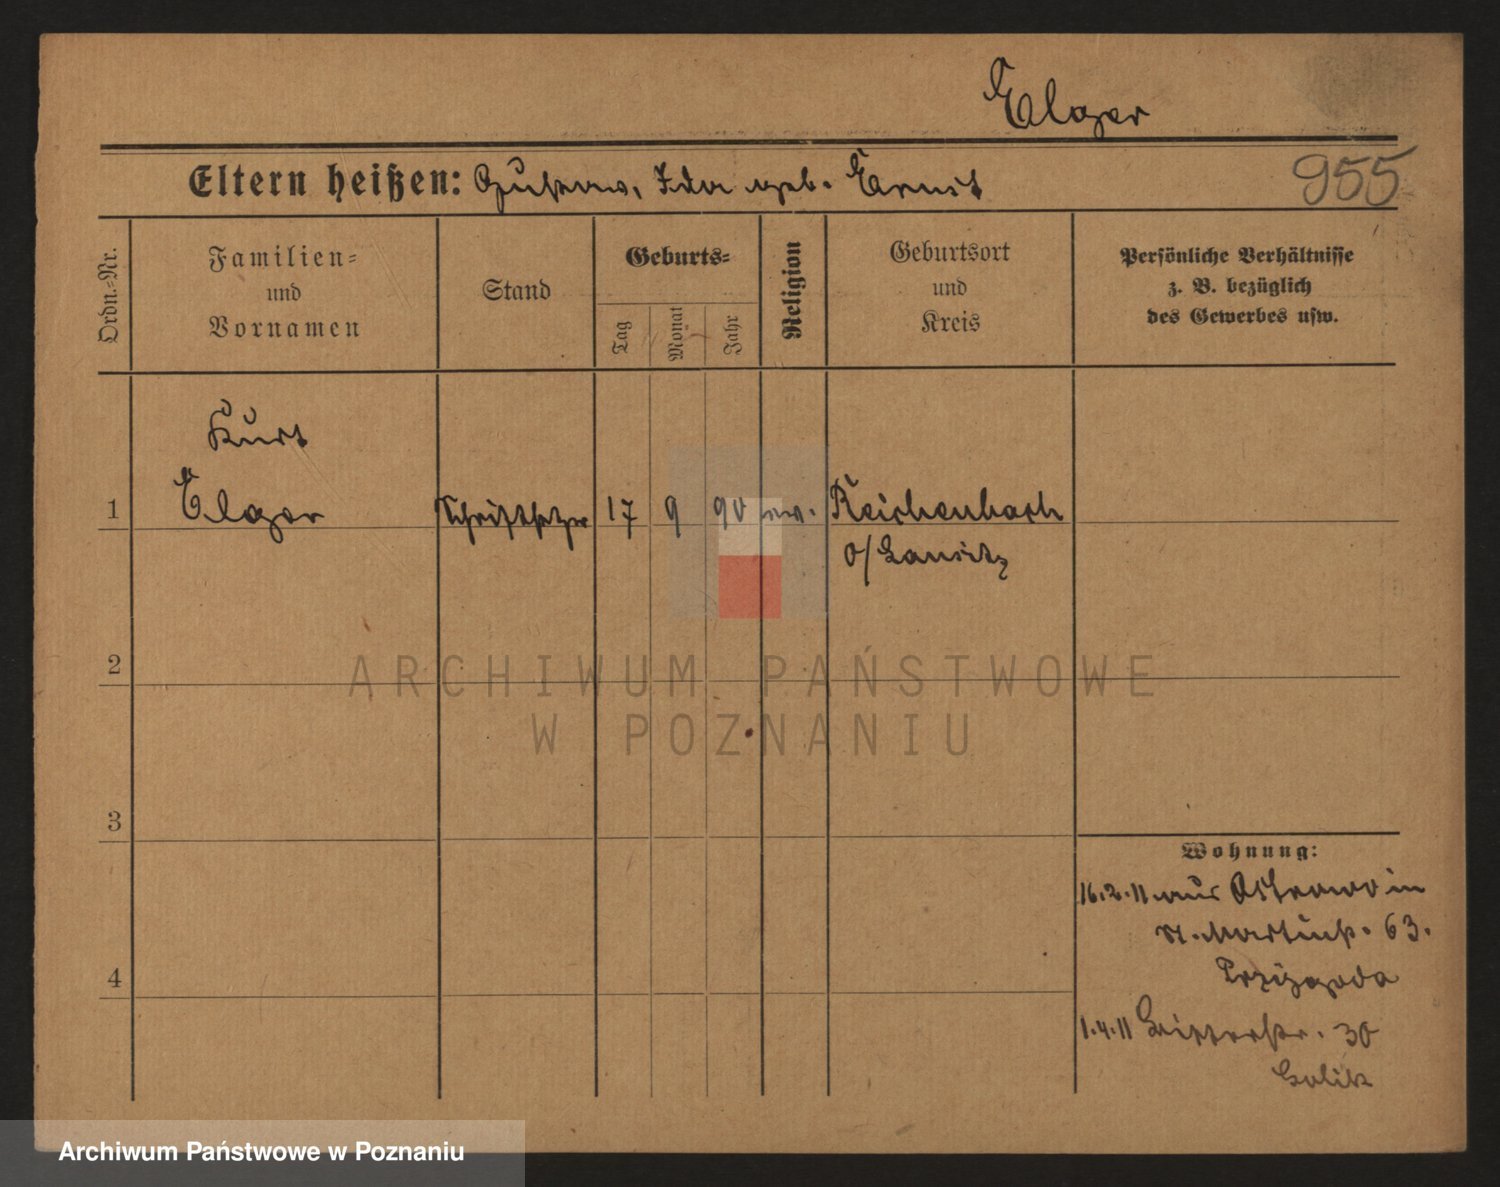 Elger
Eltern heißen: Gustav, Ida geb. Ernst
955
Ordn.=Nr.
Familien=
und
Vornamen
Stand
Geburts=
Tag
Monat
Jahr
Religion
Geburtsort
und
Kreis
Persönliche Verhältnisse
z. B. bezüglich
des Gewerbes usw.
Kurt
1 Elger Schriftsetzer 17 9 90 ev. Reichenbach
O/Lausitz
2
3
4
Wohnung:
16.2.11 aus Ostrowo in
St. Martinstr. 63.
1.4.11 Ritterstr. 30
ARCHIWUM PAŃSTWOWE
W POZNANIU
Archiwum Państwowe w Poznaniu